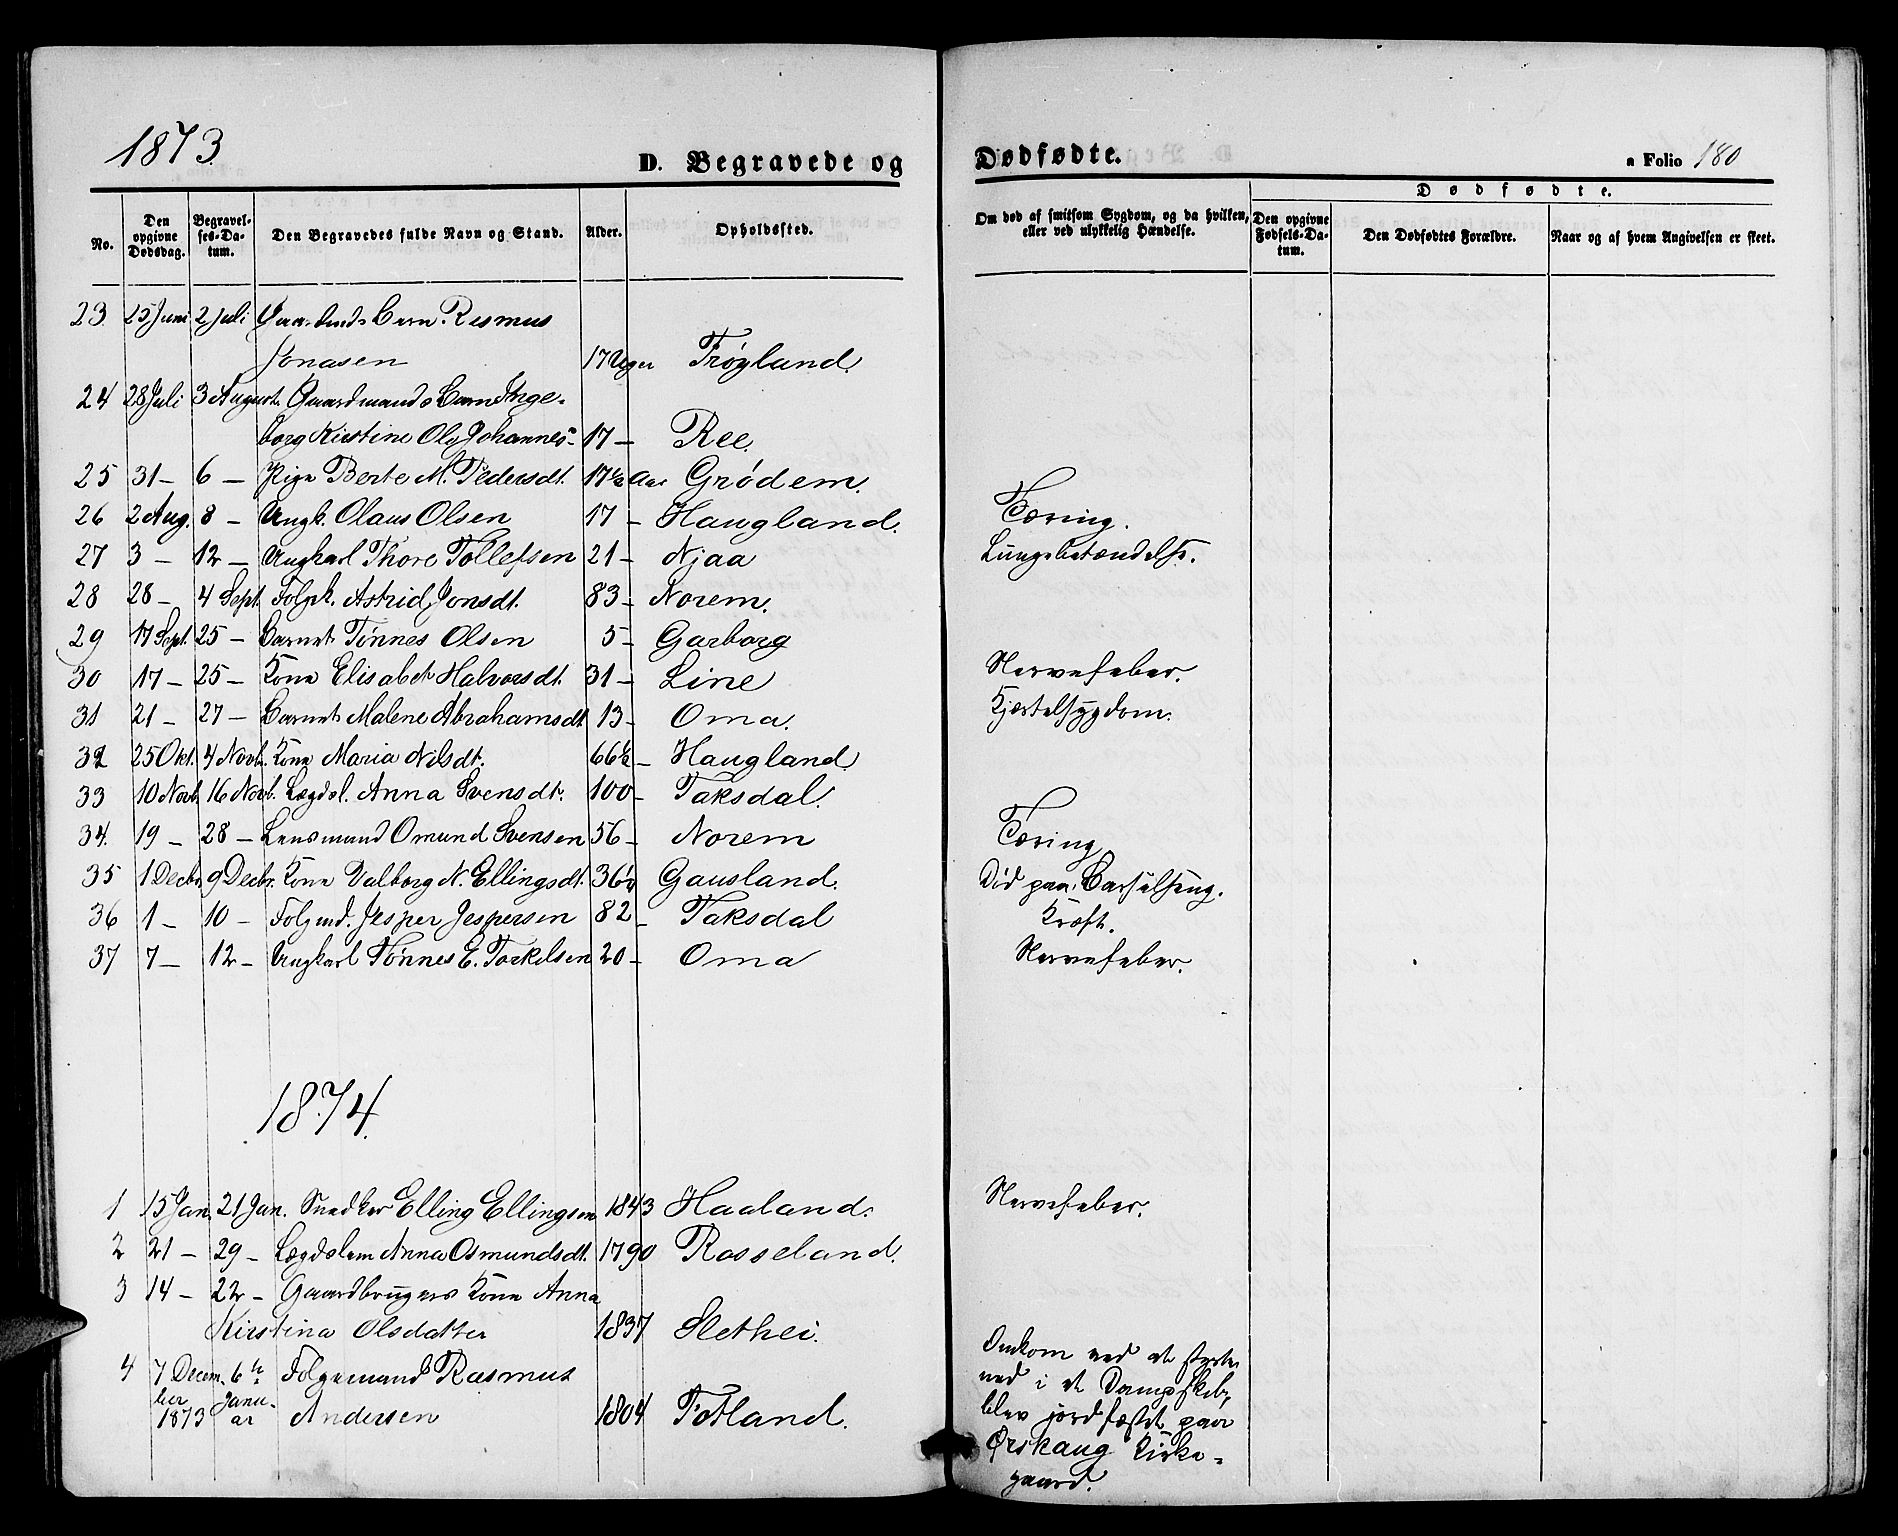 1873.
D. Begravede og
Dødfødte.
a Folio 180
Dødfødte.
No.
Den opgivne Dødsdag.
Begravelses-Datum.
Den Begravedes fulde Navn og Stand.
Alder.
Opholdssted.
Om død af smitsom Sygdom, og da hvilken, eller ved ulykkelig Hændelse.
Den opgivne Fødsels-Datum.
Den Dødfødtes Forældre.
Naar og af hvem Angivelsen er skeet.
23 25 Juni 2 Juli Gaardmds Barn Rasmus
Jonasen 17 Uger Frøyland.
24 28 Juli 3 August. Gaardmands Barn Inge-
borg Kirstine Olg Johannes- 17 – Ree.
25 31 – 6 – Pige Berte M. Pedersdt. 17½ Aar Grödem.
26 2 Aug. 8 – Ungk. Olaus Olsen 17 – Haugland. Tæring.
27 3 – 12 – Ungkarl Thore Tollefsen 21 – Njaa Lungebetændelse.
28 28 – 4 Sept. Folgk. Astrid Jonsdt. 83 – Norem.
29 17 Sept. 25 – Barnet Tönnes Olsen 5 – Garborg
30 17 – 25 – Kone Elisabet Halvorsdt. 31 – Line Nervefeber.
31 21 – 27 – Barnet Malene Abrahamsdt 13 – Oma. Kjertelsygdom.
32 25 Okt. 4 Novb. Kone Maria Nilsdt. 66½ – Haugland.
33 10 Novb. 16 Novb. Lægdsl. Anna Svensdt. 100 – Taksdal.
34. 19 – 28 – Lensmand Omund Svensen 56 – Norem Tæring
35 1 Decbr. 9 Decbr. Kone Valborg N. Ellingsdt. 36½ Gausland. Död paa Barselseng.
36 1 – 10 – Folgmd. Jesper Jespersen 82 – Taksdal Kræft.
37 7 – 12 – Ungkarl Tönnes E. Torkelsen 20 – Oma Nervefeber.
1874.
1 15 Jan. 21 Jan. Snedker Elling Ellingsen 1843 Haaland. Nervefeber.
2 21 – 29 – Lægdslem Anna Osmundsdt. 1790 Rosseland.
3 14 – 22 – Gaardbrugers Kone Anna
Kirstina Olsdatter 1837 Slethei.
4 7 Decem- 6te Folgemand Rasmus
ber Janu-
1873 ar Andersen 1804 Fotland.
Omkom ved at styrte
ned i et Dampskib,
blev jordfæstet paa
Ørskaug Kirke-
gaard.